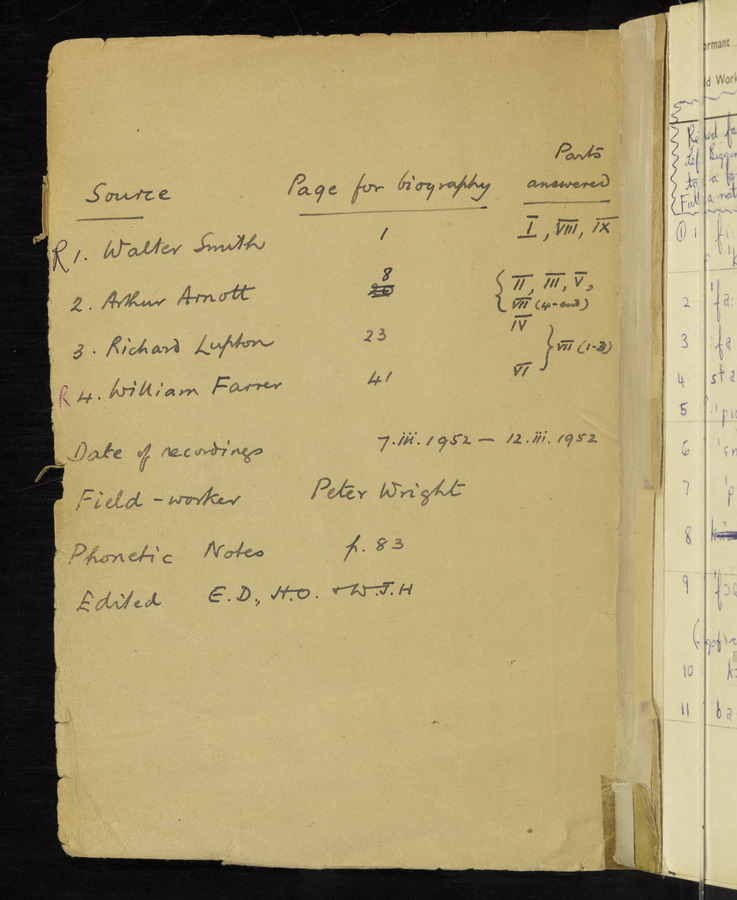 Parts
Source Page for biography answered
R 1. Walter Smith 1 I, VIII, IX
8
2. Arthur Arnott {II, III, V,
VII (4-end)
IV
3. Richard Lupton 23 } VII (1-3)
R 4. William Farrer 41 VI
Date of recordings 7.iii.1952 – 12.iii.1952
Field-worker Peter Wright
Phonetic Notes p. 83
Edited E.D., H.O. + W.J.H
ormant
ld Work
1
2
3
4
5
6
7
8
9
10
11